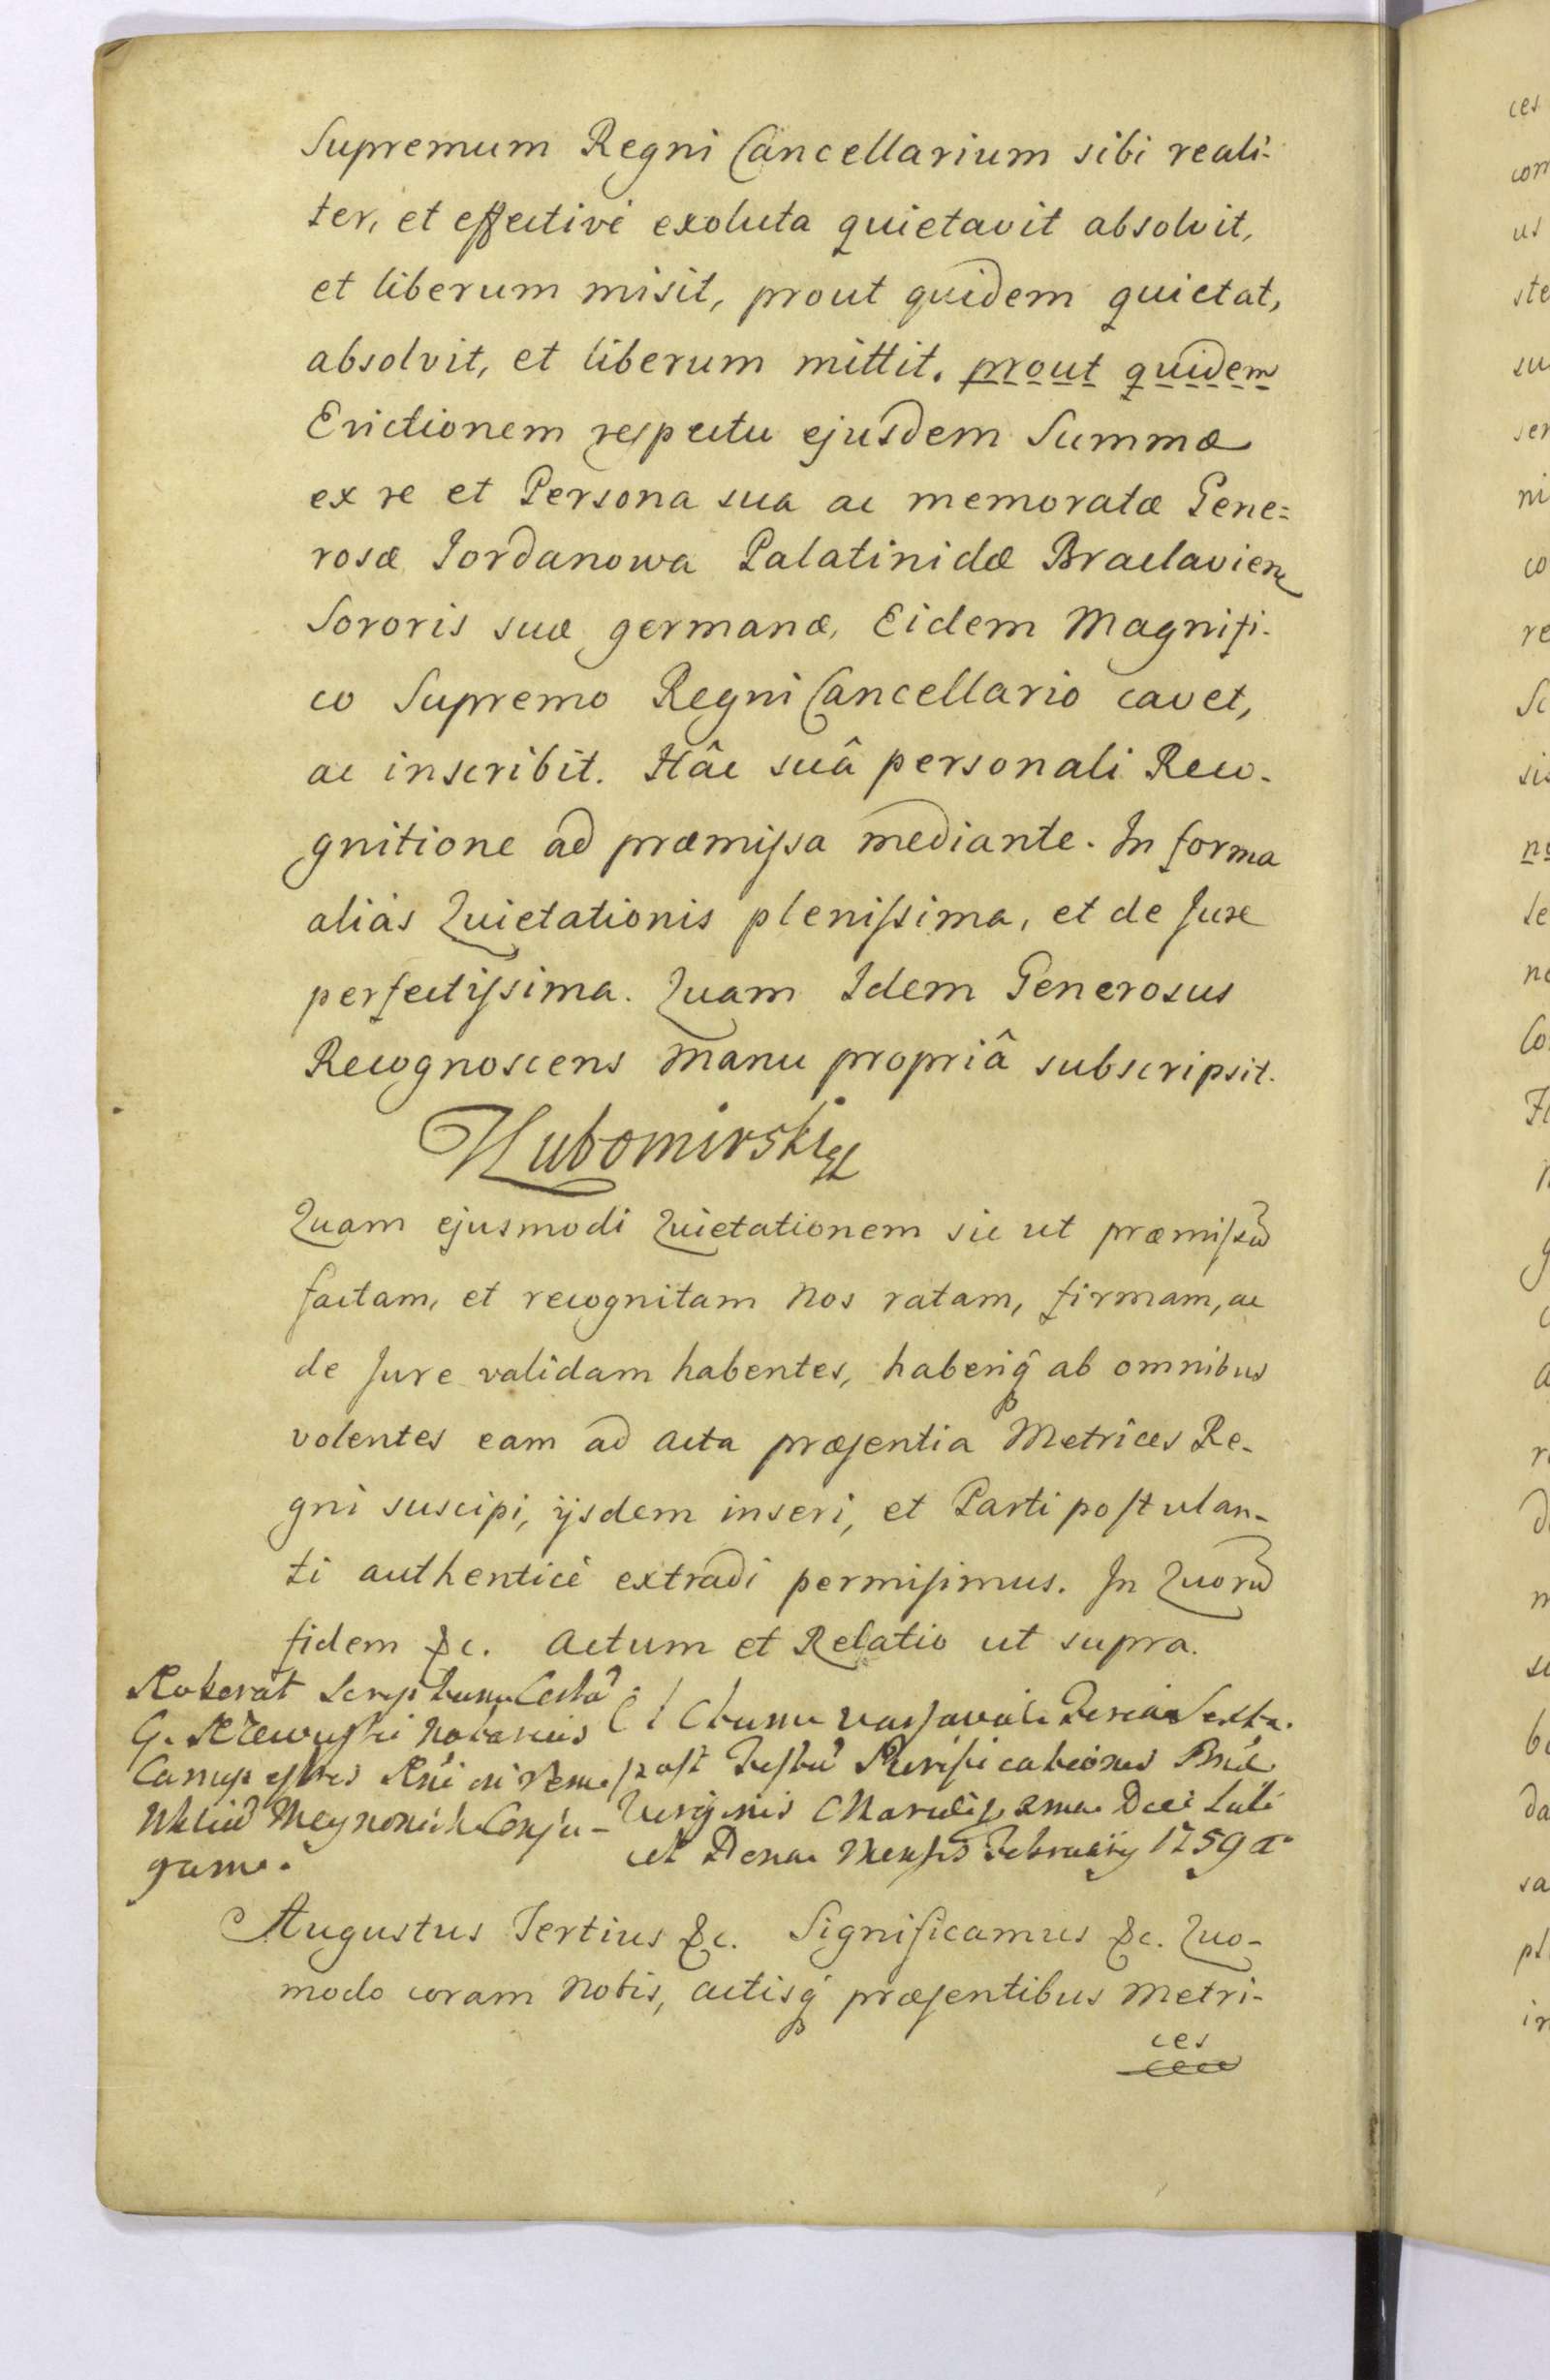 Supremum Regni Cancellarium sibi reali-
ter, et effectivè exoluta quietavit absolvit,
et liberum misit, prout quidem quietat,
absolvit, et liberum mittit. prout quidem
Evictionem respectu ejusdem Summæ
ex re et Persona sua ac memoratæ Gene=
rosæ Jordanowa Palatinidæ Braclavien
Sororis suæ germanæ, Eidem Magnifi-
co Supremo Regni Cancellario cavet,
ac inscribit. Hâc suâ personali Reco-
gnitione ad præmissa mediante. In forma
aliàs Quietationis plenissima, et de Jure
perfectissima. Quam Idem Generosus
Recognoscens manu propriâ subscripsit.
Lubomirski
Quam ejusmodi Quietationem sic ut præmissũ
factam, et recognitam Nos ratam, firmam, ac
de Jure validam habentes, haberiq̃ ab omnibus
volentes eam ad acta præsentia Metrices Re-
gni suscipi, ijsdem inseri, et Parti postulan-
ti authenticè extradi permisimus. In Quorũ
fidem &c. Actum et Relatio ut supra.
Roborat Scriptum
G. Rzewuski Notarius
Campestris
Conju-
game.
Actum Varsaviæ Feria Sexta
post Festũ Purificationis
Virginis Mariæ
Mensis February 1759 aº
Augustus Tertius &c. Significamus &c. Quo-
modo coram Nobis, actisq̃ præsentibus Metri-
ces